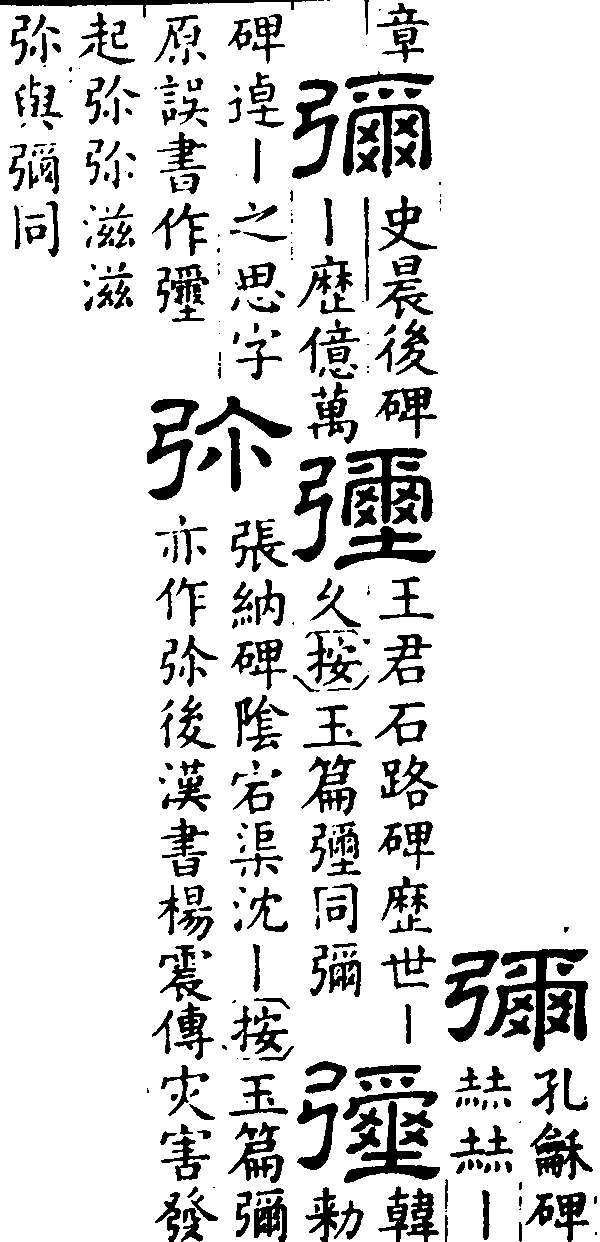 彌
孔龢碑
赫赫｜
章
彌
史晨後碑
｜歷億萬
瓕
王君石路碑歷世｜
久按玉篇瓕同彌
瓕
韓
勑
碑逴｜之思字
原誤書作瓕
弥
張納碑陰宕渠沈｜按玉篇彌
亦作弥後漢書楊震傳灾害發
起弥弥滋滋
弥與彌同